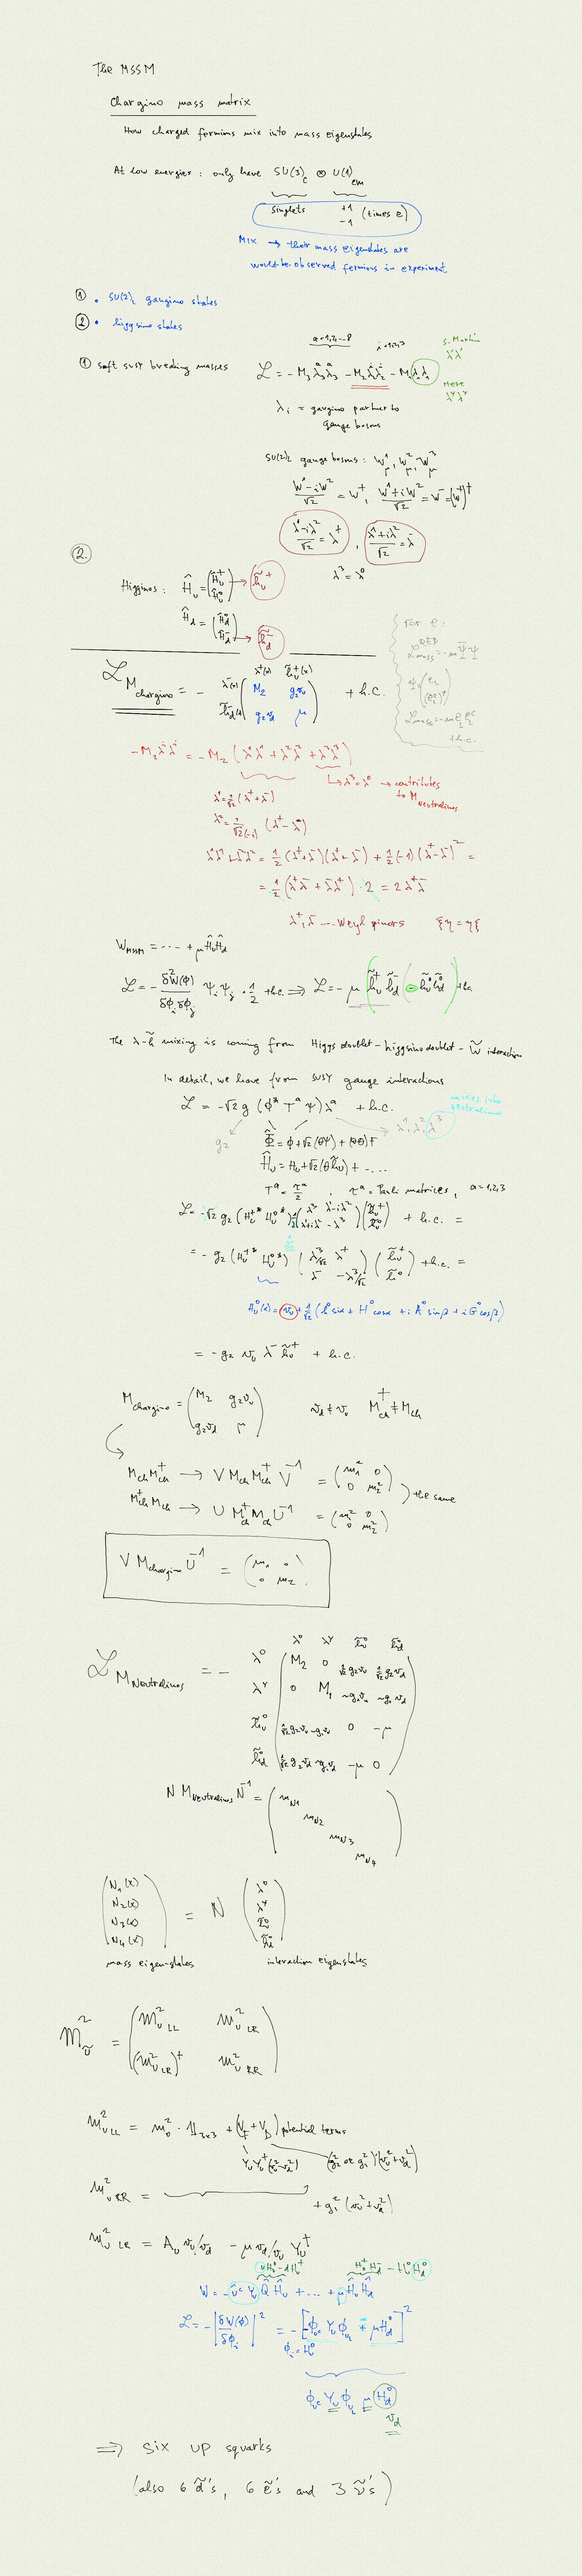 The MSSM
Chargino mass matrix
How charged fermions mix into mass eigenstates
At low energies: only have SU(3)_c ⊗ U(1)_em
singlets +1 (times e)
-1
Mix → their mass eigenstates are
would be observed fermions in experiment
① • SU(2)_L gaugino states
② • higgsino states
a=1,2,..8 i=1,2,3
① soft susy breaking masses ℒ = -M_3 λ_3^a λ_3^a - M_2 λ_2^i λ_2^i - M_1 λ_1 λ_1
S. Martin
λ'λ'
Here
λ^Y λ^Y
λ_i = gaugino partner to
gauge bosons
SU(2)_L gauge bosons: W_μ^1, W_μ^2, W_μ^3
(W^1-iW^2)/√2 = W^+, (W^1+iW^2)/√2 = W^- = (W^+)^†
(λ^1-iλ^2)/√2 = λ^+, (λ^1+iλ^2)/√2 = λ^-
λ^3 = λ^0
②.
Higgsinos: Ĥ_u = (Ĥ_u^+ Ĥ_u^0) → h̃_u^+
Ĥ_d = (Ĥ_d^0 Ĥ_d^-) → h̃_d^-
For e:
ℒ_mass^QED = -m Ψ̄Ψ
ℒ_mass = -m e_L e_L^c
+h.c.
λ^+(x) h̃_u^+(x)
ℒ_M chargino = - λ^-(x) (M_2 g_2 v_u) + h.c.
h̃_d^-(x) (g_2 v_d μ)
-M_2 λ^i λ^i = -M_2 (λ^1λ^1 + λ^2λ^2 + λ^3λ^3)
↳ λ^3 = λ^0 → contributes
to M_Neutralinos
λ^1 = 1/√2 (λ^+ + λ^-)
λ^2 = 1/(√2(-i)) (λ^+ - λ^-)
λ^1λ^1 + λ^2λ^2 = 1/2 (λ^+ + λ^-)(λ^+ + λ^-) + 1/2 (-1)(λ^+ - λ^-)^2 =
= 1/2 (λ^+λ^- + λ^-λ^+) · 2 = 2λ^+λ^-
λ^+, λ^- ... Weyl spinors ξη = ηξ
W_MSSM = ... + μĤ_uĤ_d
ℒ = - δ^2W(Φ)/(δΦ_i δΦ_j) Ψ_i Ψ_j · 1/2 + h.c. ⟹ ℒ = -μ (h̃_u^+ h̃_d^- - h̃_u^0 h̃_d^0) + h.c.
The λ-h̃ mixing is coming from Higgs doublet - higgsino doublet - W̃ interactions
In detail, we have from SUSY gauge interactions
ℒ = -√2 g (Φ* T^a Ψ) λ^a + h.c.
mixes into
neutralino
g_2 Φ̂ = Φ + √2(θΨ) + (θθ)F λ^1, λ^2, λ^3
Ĥ_u = H_u + √2(θh̃_u) + ....
T^a = τ^a/2 , τ^a = Pauli matrices, a=1,2,3
ℒ = -√2 g_2 (H_u^+* H_u^0*) 1/2 (λ^3 λ^1-iλ^2; λ^1+iλ^2 -λ^3) (h̃_u^+ h̃_u^0) + h.c. =
= -g_2 (H_u^+* H_u^0*) (λ^3/√2 λ^+; λ^- -λ^3/√2) (h̃_u^+ h̃_u^0) + h.c. =
H_u^0(x) = v_u + 1/√2 (h^0 sinα + H^0 cosα + i A^0 sinβ + i G^0 cosβ)
= -g_2 v_u λ^- h̃_u^+ + h.c.
M_chargino = (M_2 g_2v_u; g_2v_d μ) v_d ≠ v_u M_ch^† ≠ M_ch
M_ch M_ch^† → V M_ch M_ch^† V^-1 = (m_1^2 0; 0 m_2^2)
) the same
M_ch^† M_ch → U M_ch^† M_ch U^-1 = (m_1^2 0; 0 m_2^2)
V M_chargino U^-1 = (m_1 0; 0 m_2)
λ^0 λ^Y h̃_u^0 h̃_d^0
ℒ_M Neutralinos = - λ^0 (M_2 0 1/√2 g_2v_u 1/√2 g_2v_d)
λ^Y (0 M_1 ~g_1v_u ~g_1v_d)
h̃_u^0 (1/√2 g_2v_u ~g_1v_u 0 -μ)
h̃_d^0 (1/√2 g_2v_d ~g_1v_d -μ 0)
N M_Neutralinos N^-1 = (m_N1 m_N2 m_N3 m_N4)
(N_1(x) N_2(x) N_3(x) N_4(x)) = N (λ^0 λ^Y h̃_u^0 h̃_d^0)
mass eigenstates interaction eigenstates
m_ũ^2 = (m_U LL^2 m_U LR^2; (m_U LR^2)^† m_U RR^2)
m_U LL^2 = m_0^2 · 1_3x3 + (V_F + V_D) potential terms
Y_U Y_U^† (v_u^2-v_d^2) (g_2^2 or g_1^2)(v_u^2+v_d^2)
m_U RR^2 = + g_1^2 (v_u^2+v_d^2)
m_U LR^2 = A_U v_u/v_d - μ v_d/v_u Y_U^†
uH_u^0 - dH_u^+ H_u^+H_d^- - H_u^0H_d^0
W = -û^c Y_U Q̂ Ĥ_u + ... + μĤ_uĤ_d
ℒ = -|δW(Φ)/δΦ_i|^2 = -[-Φ_uc Y_U Φ_uL ∓ μH_d^0]^2
Φ_i = H_u^0
Φ_uc Y_U Φ_uL μ H_d^0
v_d
⟹ six up squarks
(also 6 d̃'s, 6 ẽ's and 3 ν̃'s)